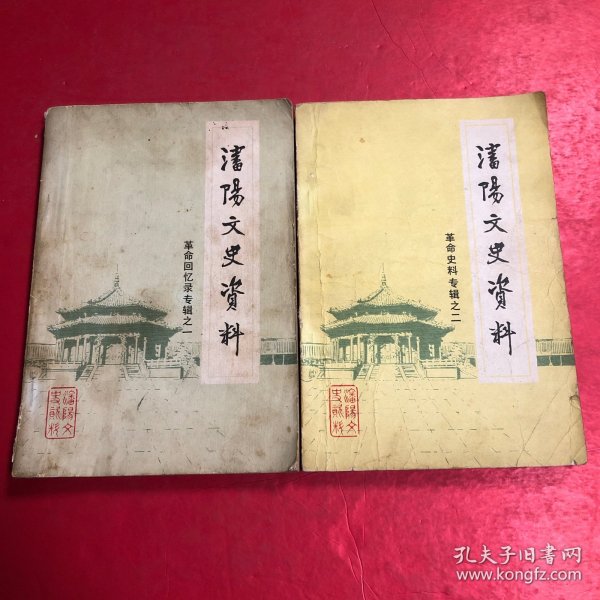 瀋陽文史資料
革命回忆录 专辑之一
瀋陽文
史資料
瀋陽文史資料
革命史料 专辑之二
瀋陽文
史資料
孔夫子旧书网
www.kongfz.com